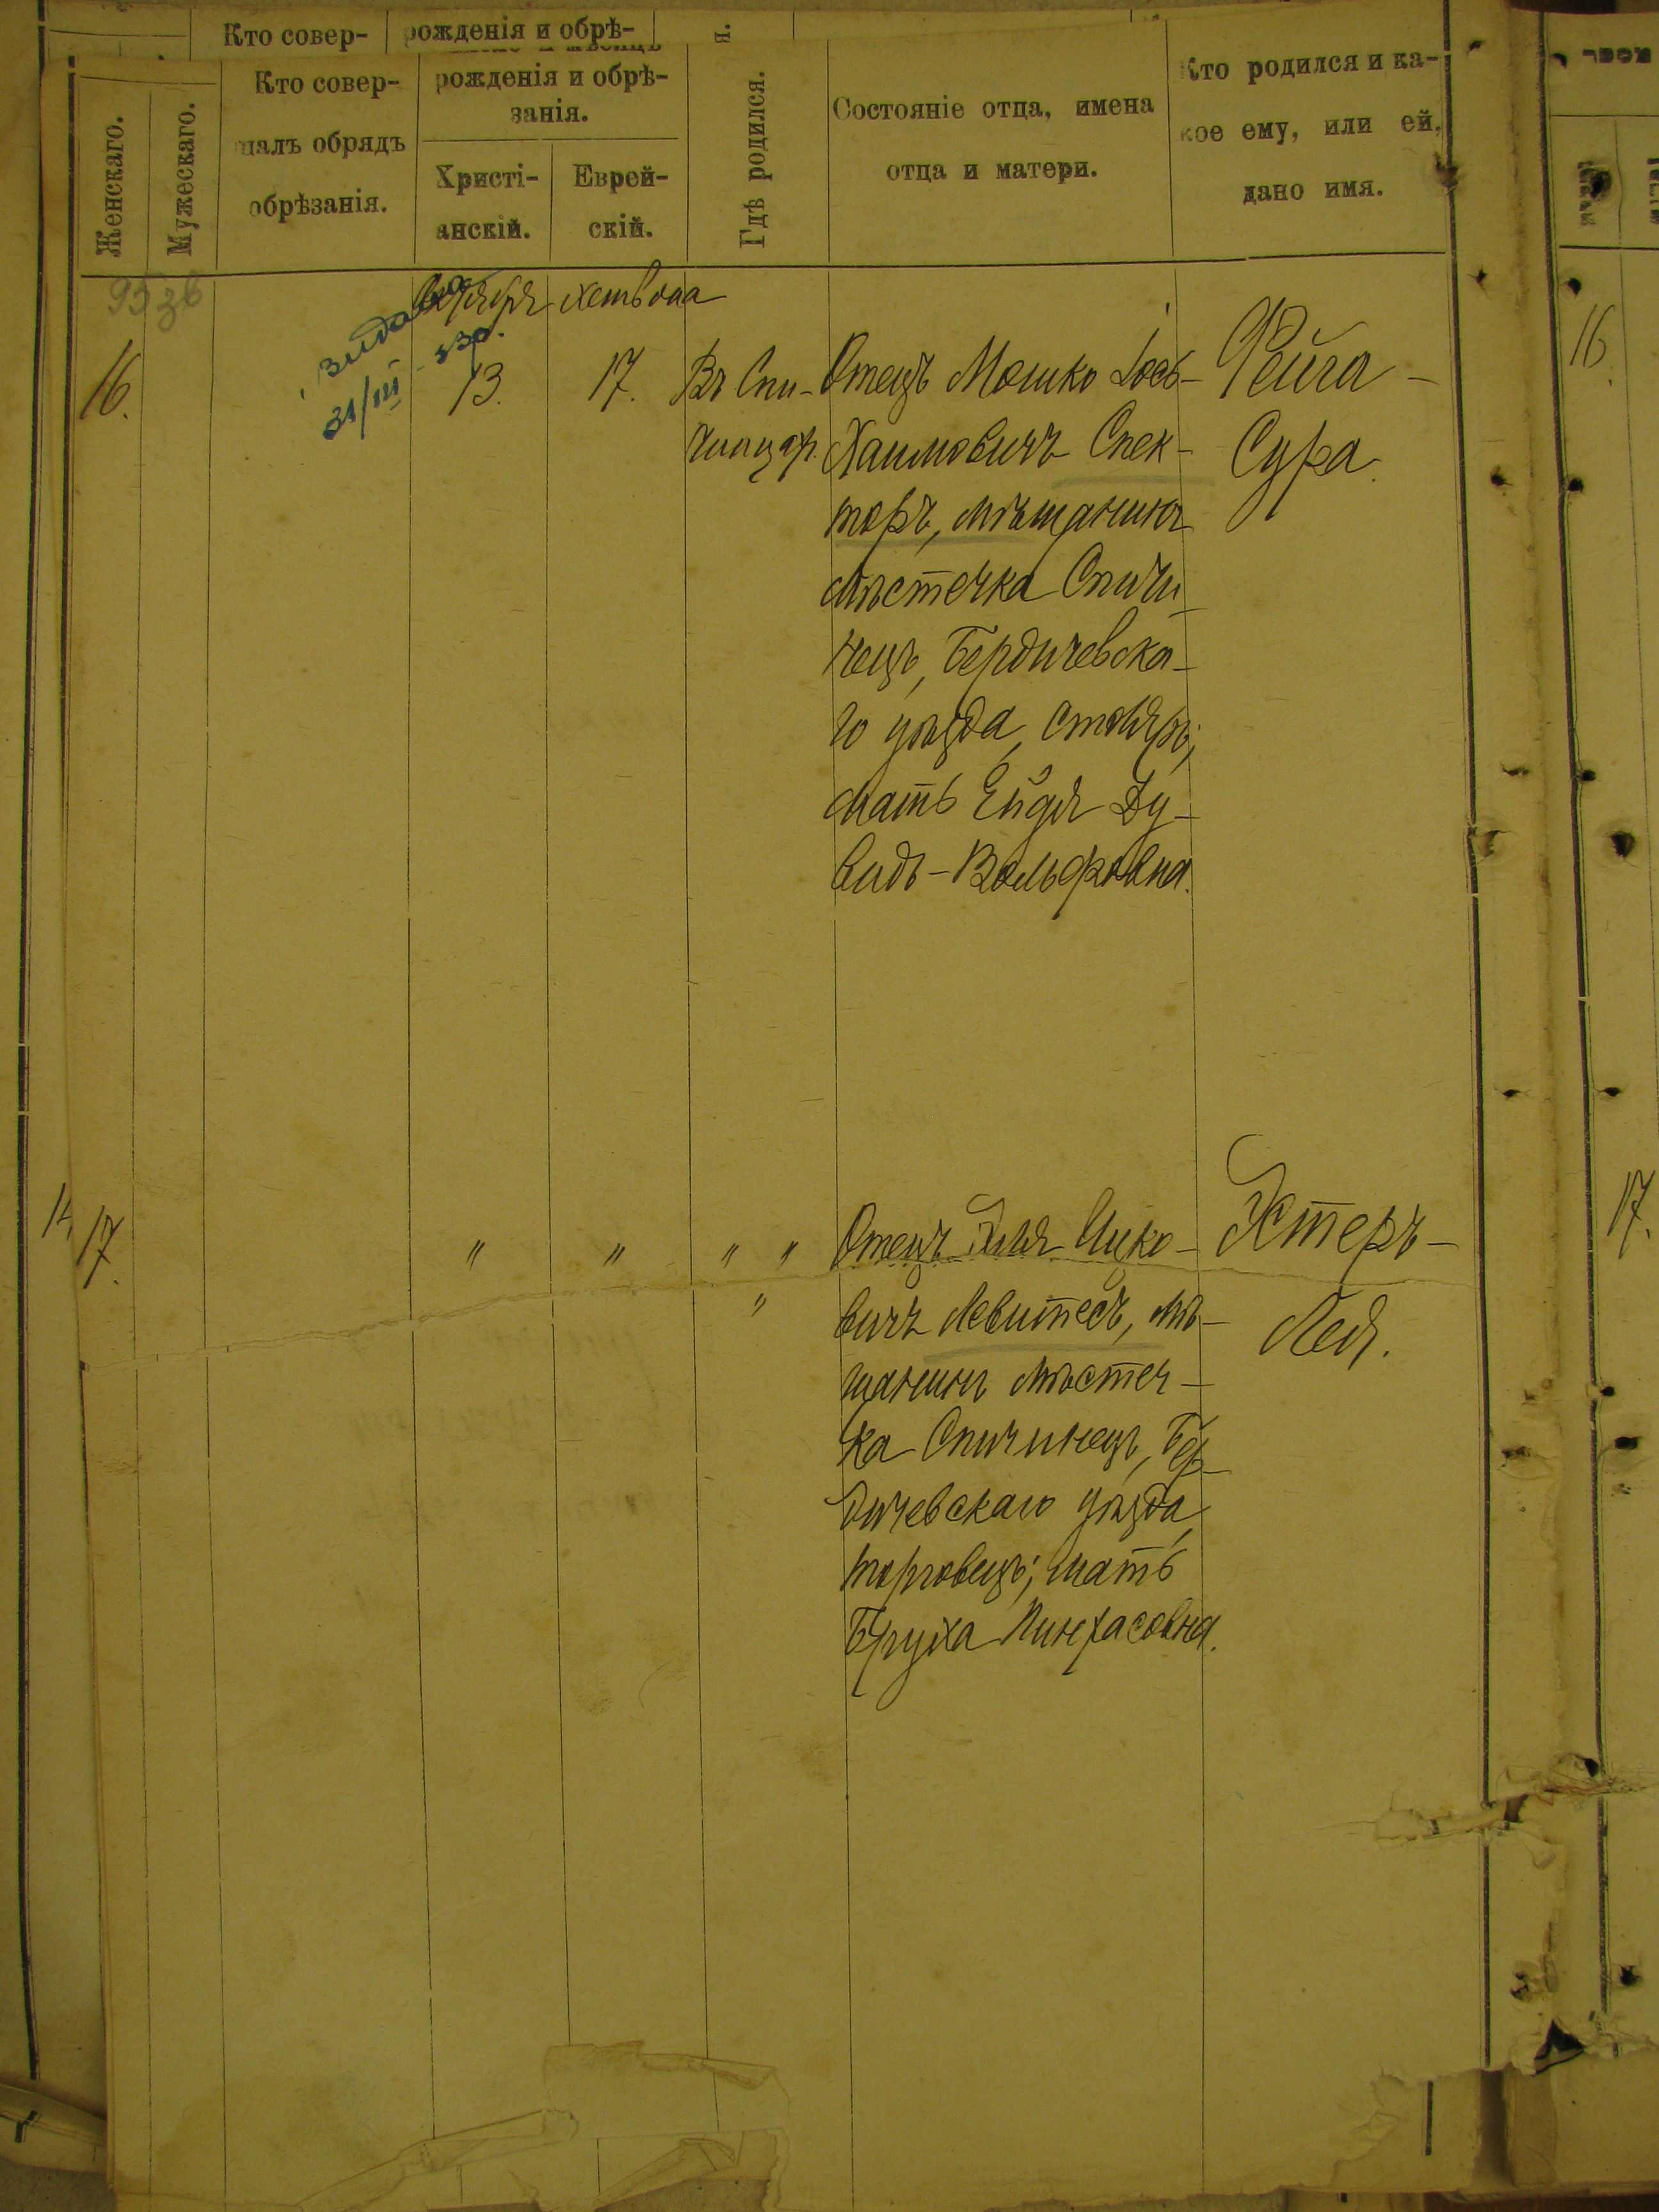 Кто совер-
рожденія и обрѣ-
Женскаго.
Мужескаго.
Кто совер-
шалъ обрядъ
обрѣзанія.
рожденія и обрѣ-
занія.
Христі-
анскій.
Еврей-
скій.
Гдѣ родился.
Состояніе отца, имена
отца и матери.
Кто родился и ка-
кое ему, или ей,
дано имя.
95 зв
Октября
Хешвона
видано
31/III - 53р.
16.
13.
17.
Въ Спи-
чинцах.
Отецъ Мошко Іось-
Хаимовичъ Спек-
торъ, мѣщанинъ
мѣстечка Спичи-
нецъ, Бердичевска-
го уѣзда, столяръ;
мать Ейдля Ду-
видъ-Вольфовна.
Фейга-
Сура.
16.
17.
" " " "
"
Отецъ Эля Ицко-
вичъ Левитесъ, мѣ-
щанинъ мѣстеч-
ка Спичинецъ, Бер-
дичевскаго уѣзда,
торговецъ; мать
Бруха Пинхасовна.
Эстеръ-
Лея.
17.